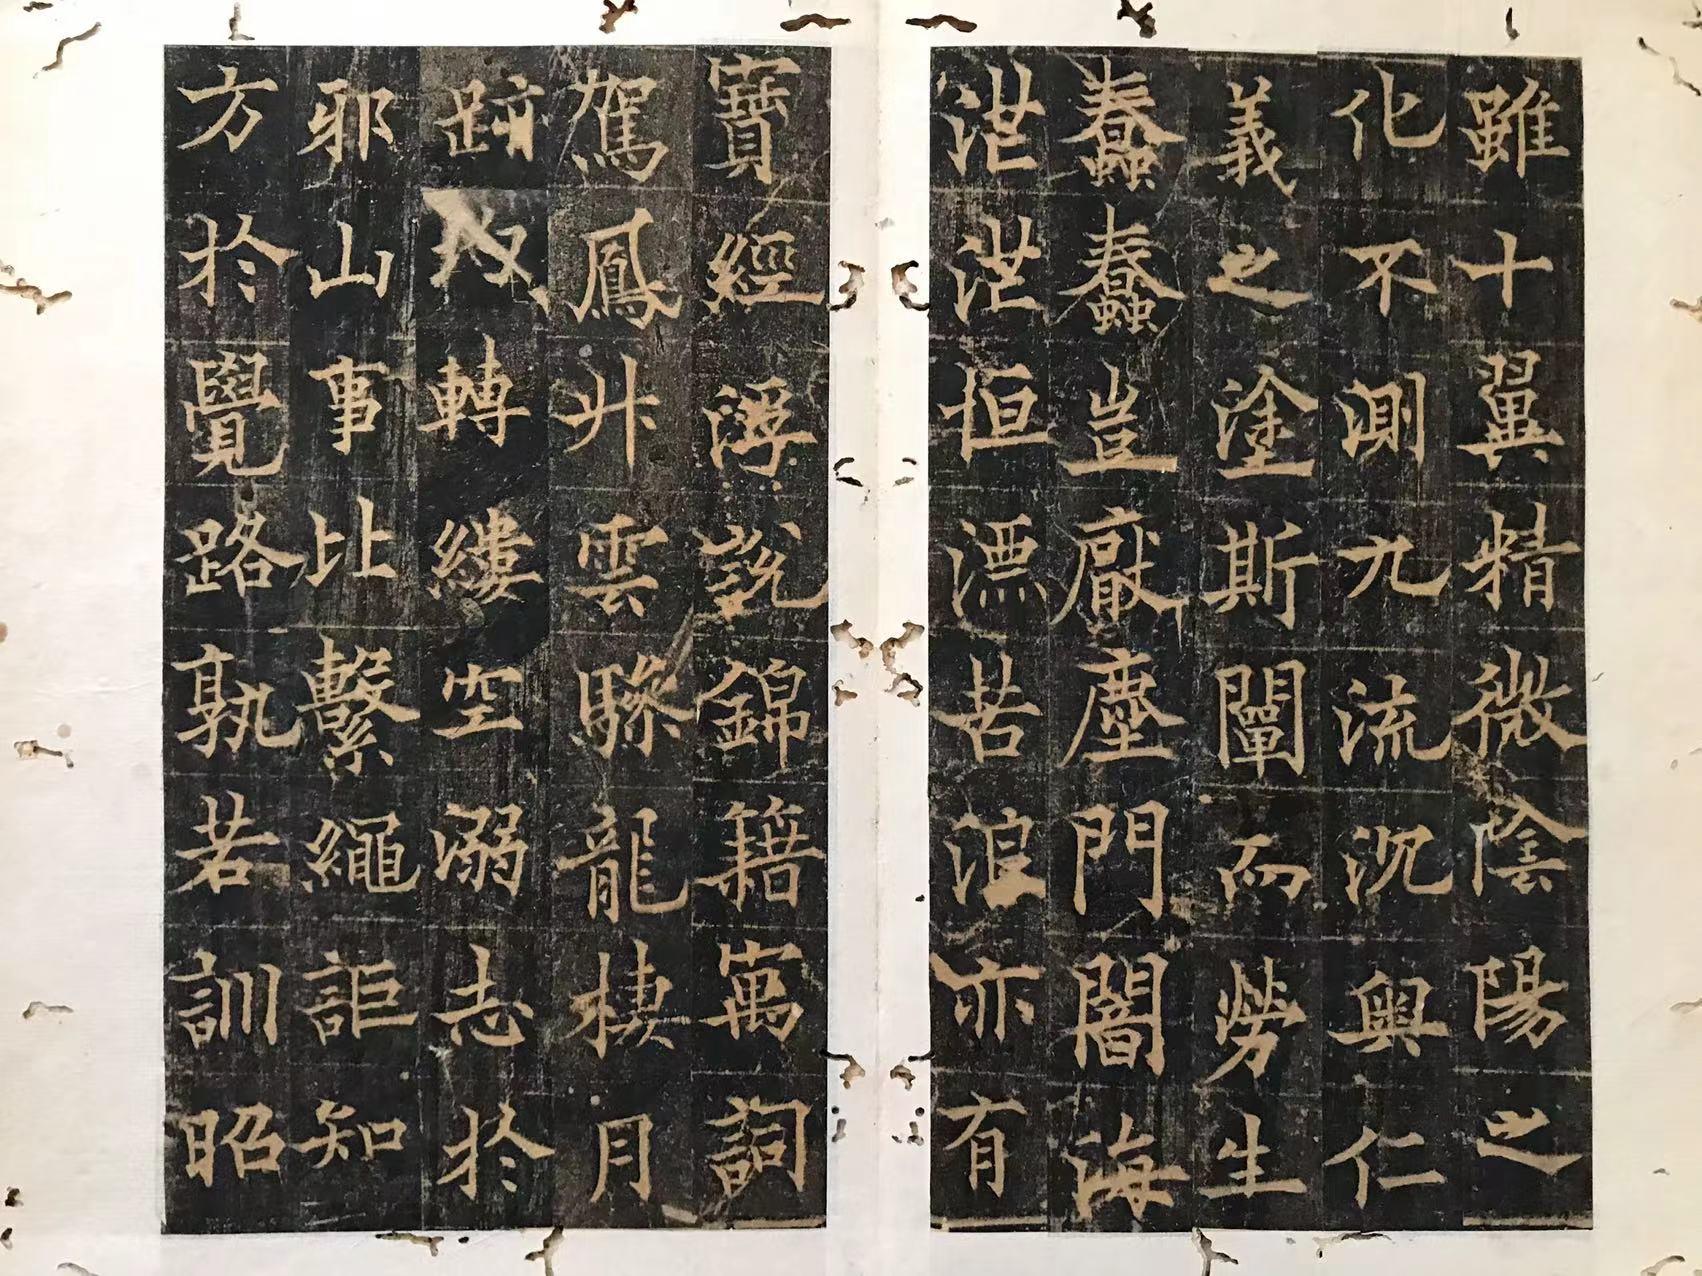 雖十翼精微陰陽之
化不測九流沉奧仁
義之塗斯闡而勞生
蠢蠢豈厭塵門闇海
茫茫恒漂苦浪亦有
寶經浮說錦籍寓詞
駕鳳升雲驂龍棲月
跡均轉縷空溺志於
邪山事比繫繩詎知
方於覺路孰若訓昭